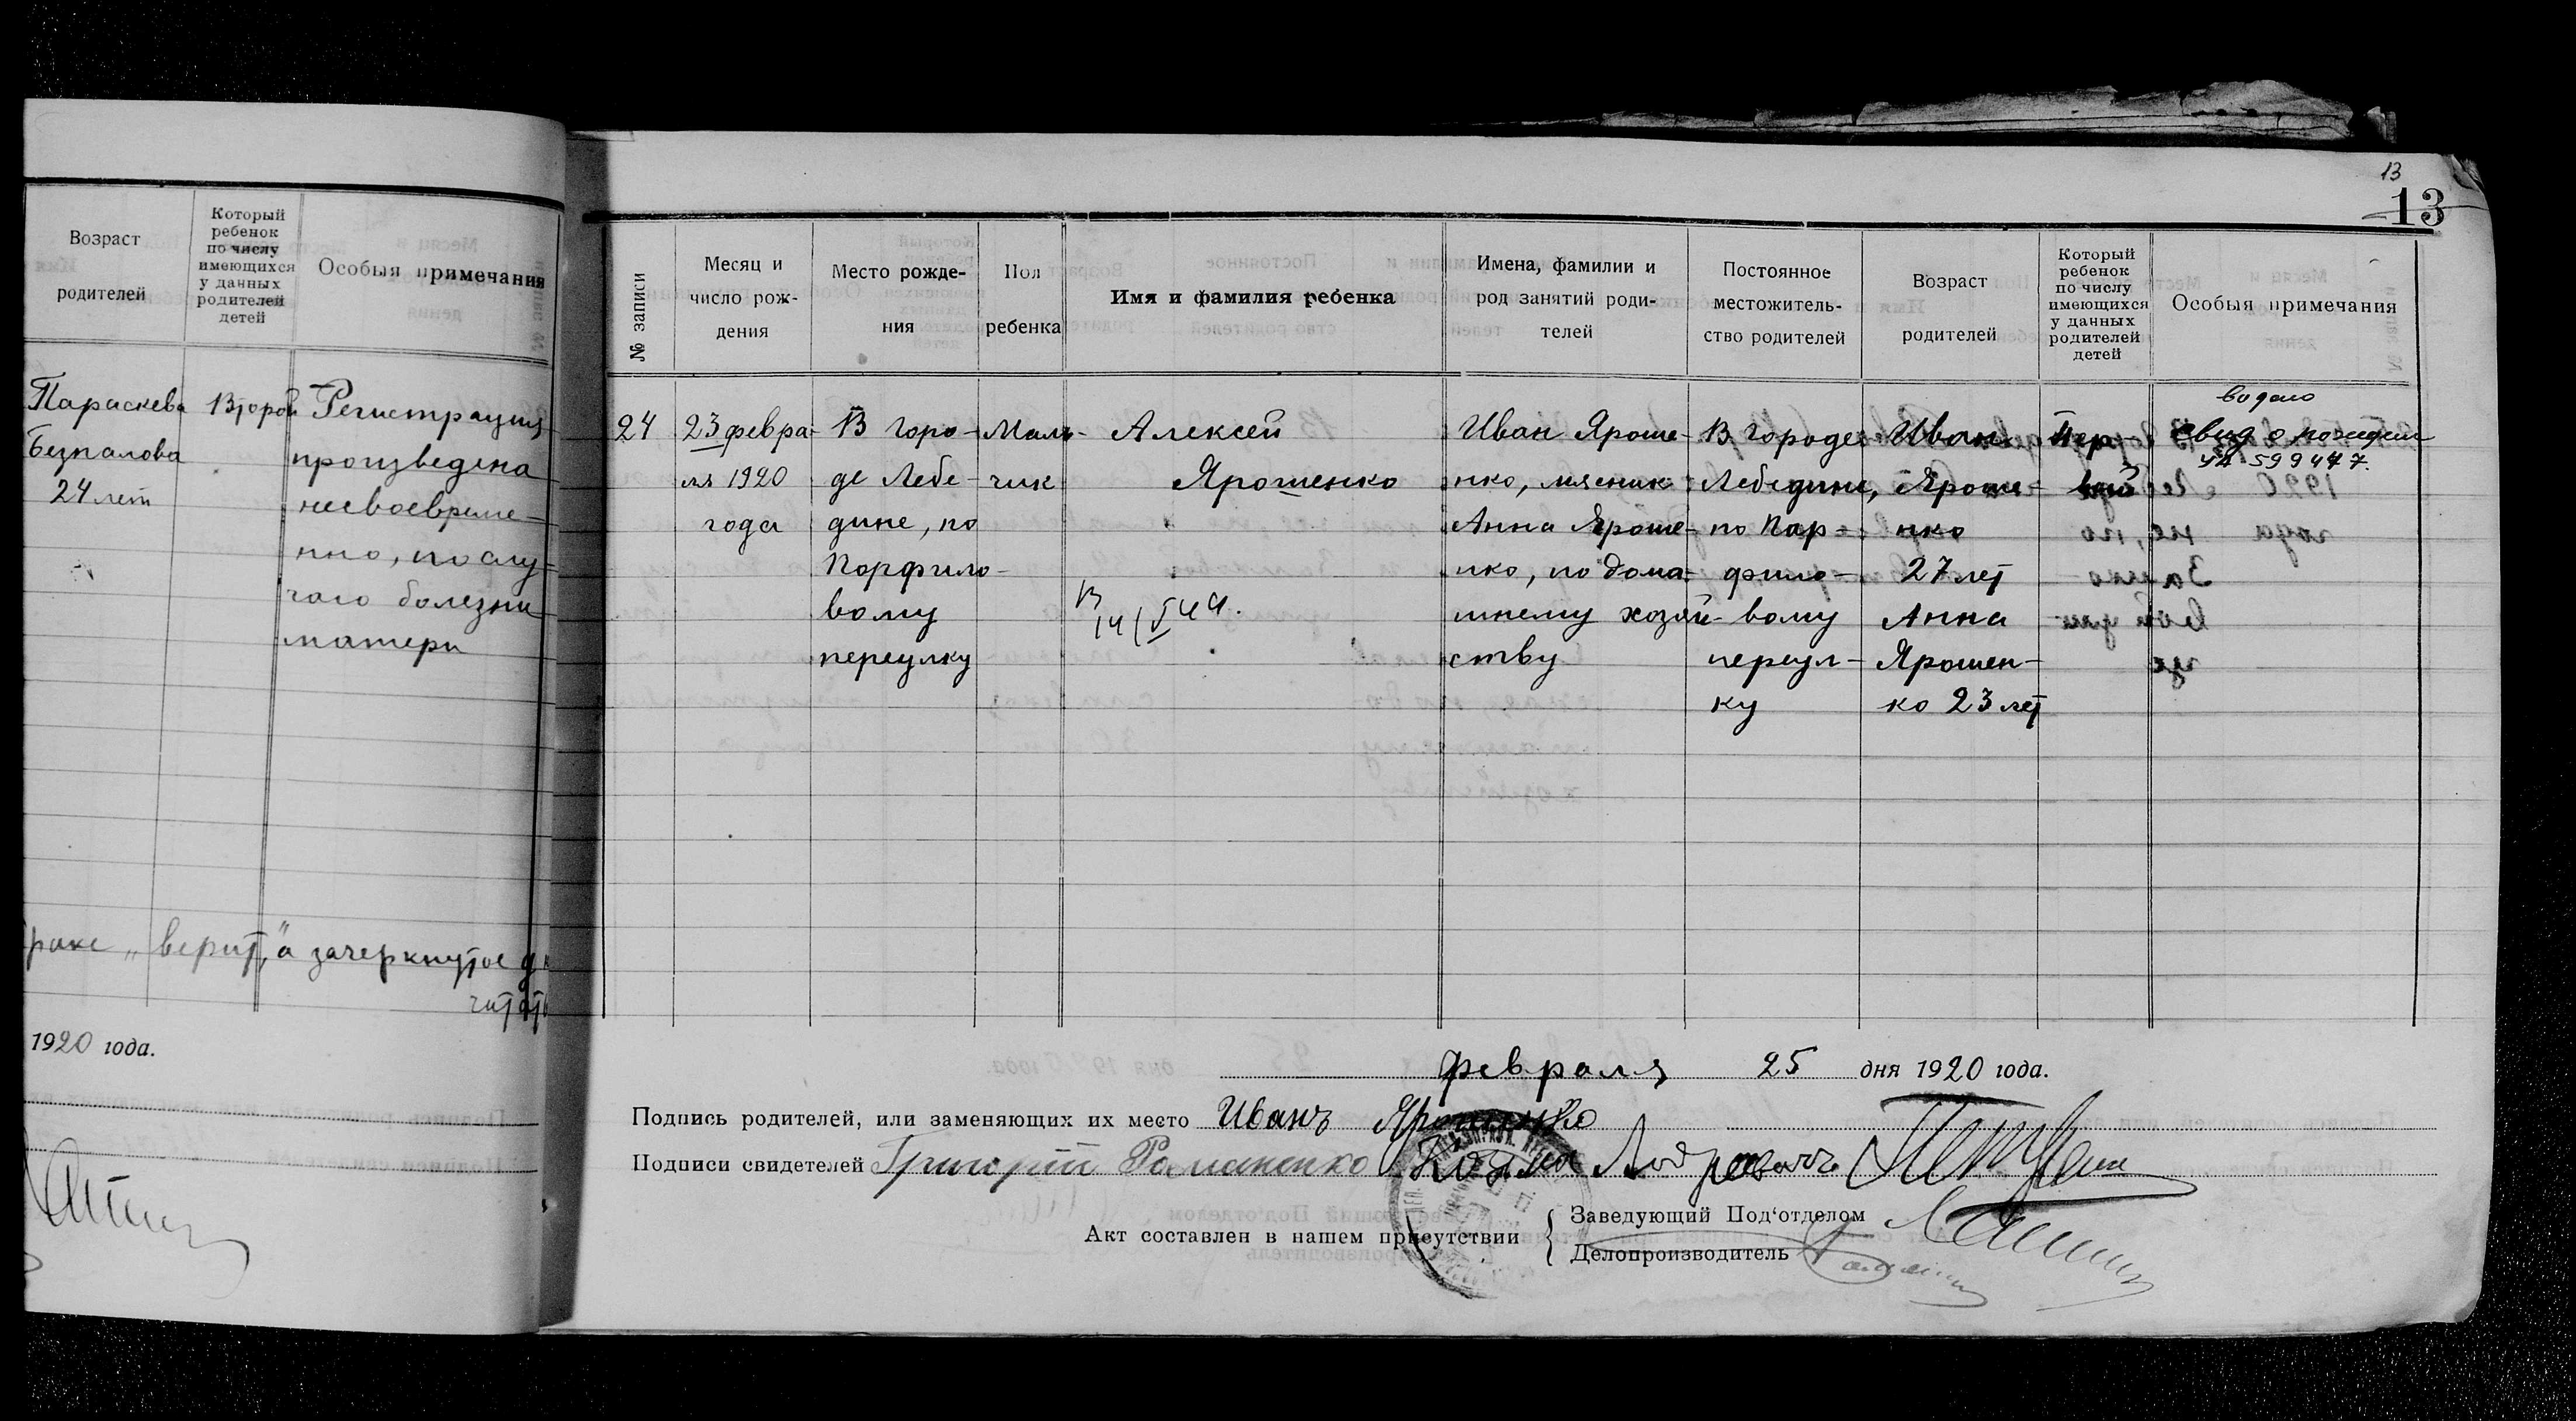 Возраст
родителей
Который
ребенок
по числу
имеющихся
у данных
родителей
детей
Особыя примечания
Параскева
Безпалова
24 лет
Второй
Регистрация
произведена
несвоевреме-
нно, по слу-
чаю болезни
матери
„верит," а зачеркнутое
читать
1920 года.
13
13
№ записи
Месяц и
число рож-
дения
Место рожде-
ния
Пол
ребенка
Имя и фамилия ребенка
Имена, фамилии и
род занятий роди-
телей
Постоянное
местожитель-
ство родителей
Возраст
родителей
Который
ребенок
по числу
имеющихся
у данных
родителей
детей
Особыя примечания
24
23 февра-
ля 1920
года
В горо-
де Лебе-
дине, по
Порфило-
вому
переулку
Маль-
чик
Алексей
Ярошенко
Иван Яроше-
нко, мясник
Анна Яроше-
нко, по дома-
шнему хозяй-
ству
В городе
Лебедине,
по Пар-
фило-
вому
переул-
ку
Иван
Яроше-
нко
27 лет
Анна
Ярошен-
ко 23 лет
Пер-
вый
выдано
свид о рожден
599447.
февраля 25 дня 1920 года.
Подпись родителей, или заменяющих их место Иванъ Ярошенко
Подписи свидетелей Григорий Романенко Козма
Акт составлен в нашем присутствии
Заведующий Под'отделом
Делопроизводитель